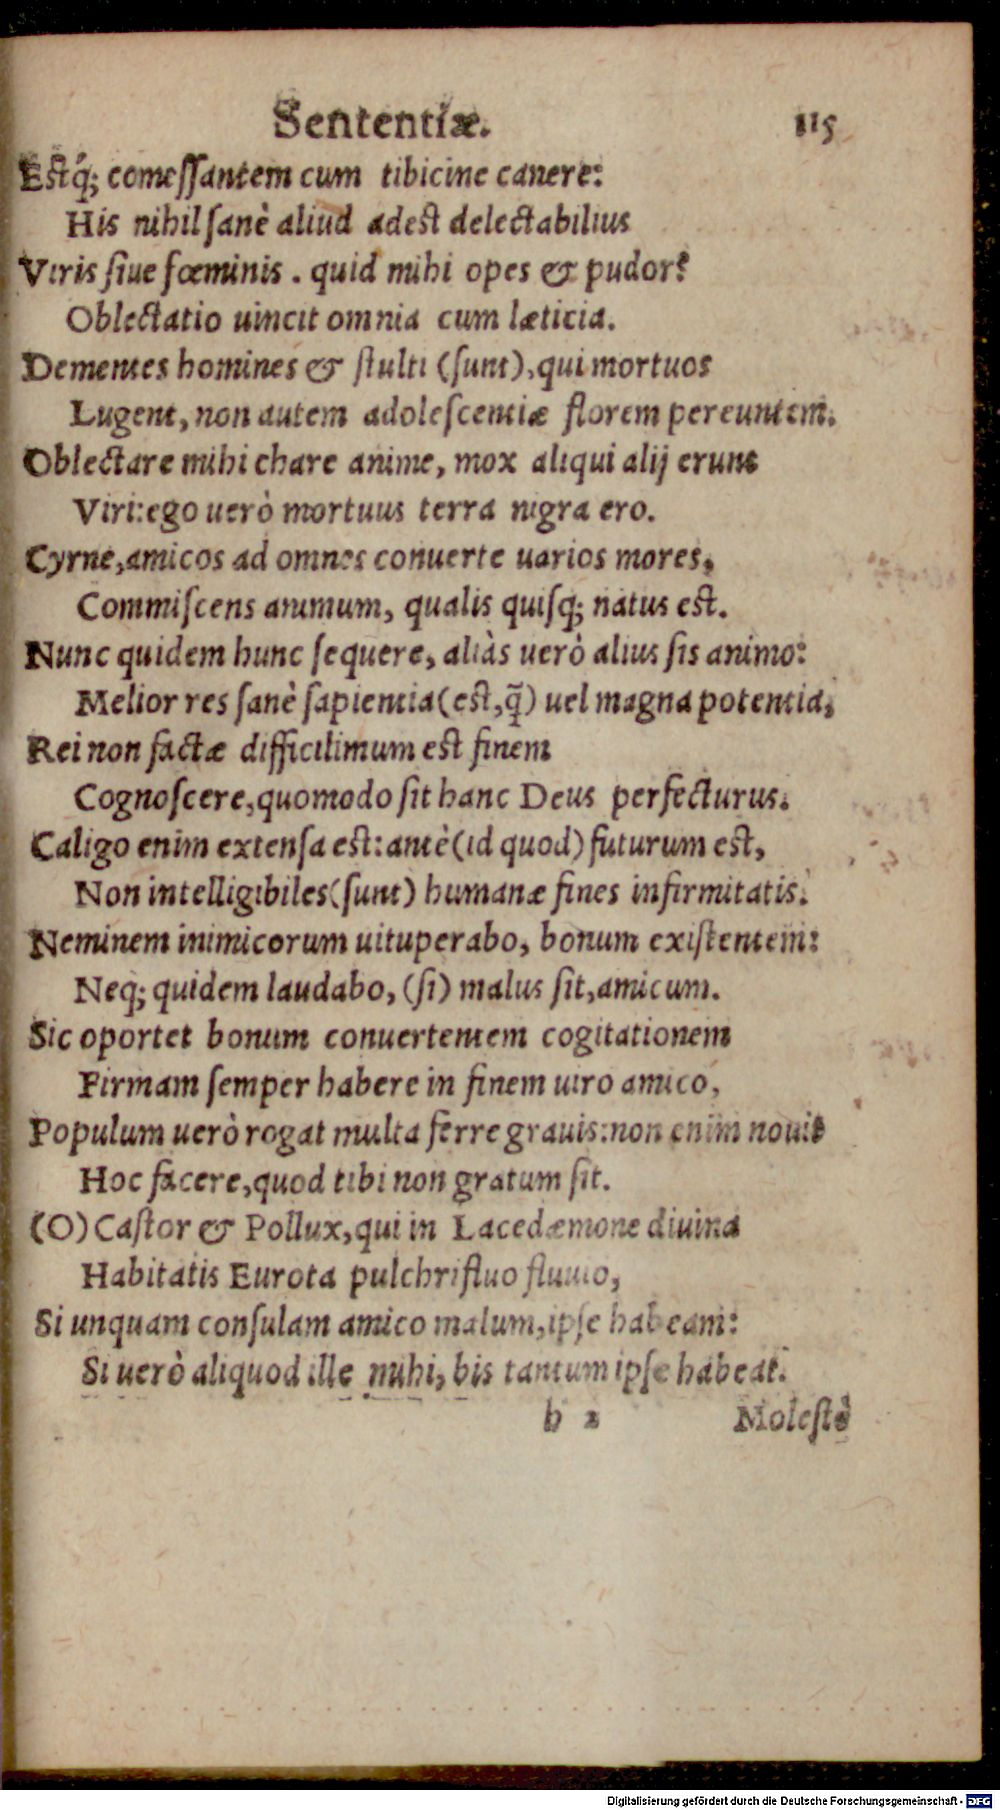 Sententiæ. 115
Estq́; comessantem cum tibicine canere:
His nihil sanè aliud adest delectabilius
Viris siue fœminis. quid mihi opes & pudor?
Oblectatio uincit omnia cum læticia.
Dementes homines & stulti (sunt), qui mortuos
Lugent, non autem adolescentiæ florem pereuntem.
Oblectare mihi chare anime, mox aliqui alij erunt
Viri: ego uerò mortuus terra nigra ero.
Cyrne, amicos ad omnes conuerte uarios mores,
Commiscens animum, qualis quisq; natus est.
Nunc quidem hunc sequere, aliàs uerò alius sis animo:
Melior res sanè sapientia (est, q̃) uel magna potentia,
Rei non factæ difficilimum est finem
Cognoscere, quomodo sit hanc Deus perfecturus.
Caligo enim extensa est: antè (id quod) futurum est,
Non intelligibiles (sunt) humanæ fines infirmitatis.
Neminem inimicorum uituperabo, bonum existentem:
Neq; quidem laudabo, (si) malus sit, amicum.
Sic oportet bonum conuertentem cogitationem
Firmam semper habere in finem uiro amico,
Populum uerò rogat multa ferre grauis: non enim nouit
Hoc facere, quod tibi non gratum sit.
(O) Castor & Pollux, qui in Lacedæmone diuina
Habitatis Eurota pulchrifluo fluuio,
Si unquam consulam amico malum, ipse habeam:
Si uerò aliquod ille mihi, bis tantum ipse habeat.
h 2 Molestè
Digitalisierung gefördert durch die Deutsche Forschungsgemeinschaft - DFG